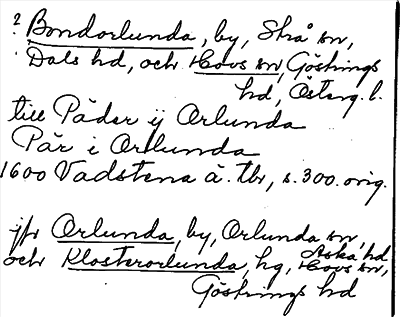 ? Bondorlunda, by, Strå sn,
Dals hd, och Hovs sn, Göstrings
hd, Österg. l.
till Päder ij Orlunda
Pär i Orlunda
1600 Vadstena ä. tbr, s. 300. orig.
jfr Orlunda, by, Orlunda sn, Aska hd
och Klosterorlunda, hg, Hovs sn,
Göstrings hd